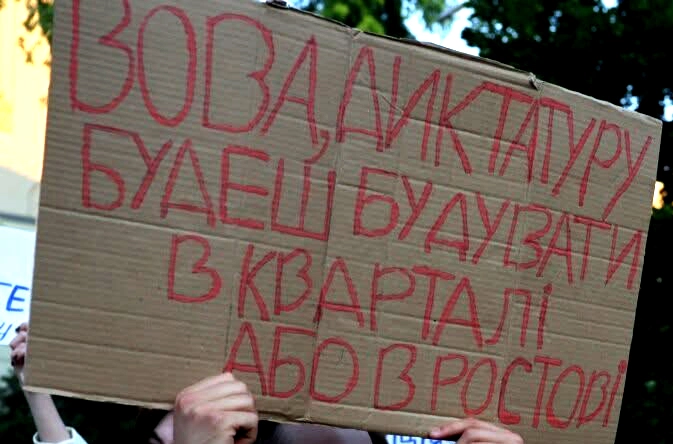 ВОВА, ДИКТАТУРУ
БУДЕШ БУДУВАТИ
В КВАРТАЛІ
АБО В РОСТОВІ